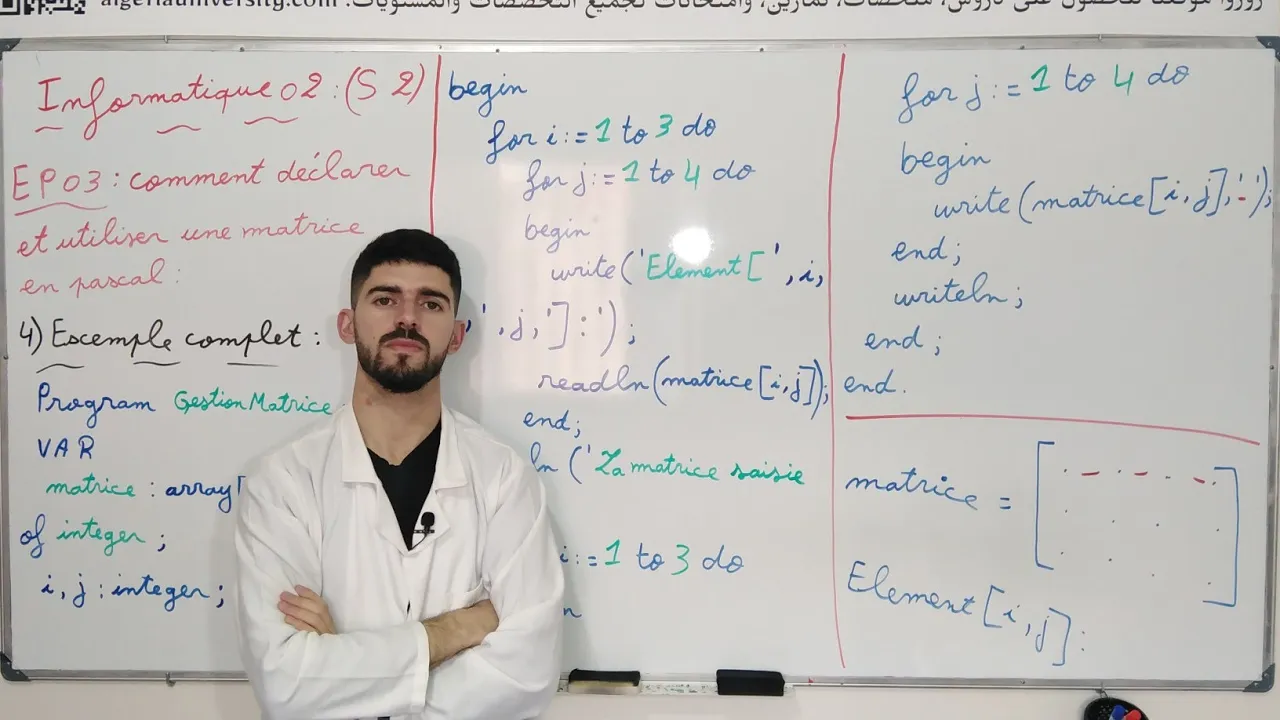 algeriauniversity.com زوروا موقعنا للحصول على دروس، ملخصات، تمارين، وامتحانات لجميع التخصصات والمستويات:
Informatique 02 : (S 2)
EP03 : comment déclarer
et utiliser une matrice
en pascal :
4) Escemple complet :
Program GestionMatrice
VAR
matrice : array[
of integer ;
i, j : integer ;
begin
for i := 1 to 3 do
for j := 1 to 4 do
begin
write('Element [ ', i,
,' , j, '] : ') ;
readln(matrice[i,j]);
end;
ln ('La matrice saisie
i := 1 to 3 do
for j := 1 to 4 do
begin
write(matrice[i,j],'-');
end;
writeln;
end;
end.
matrice =
Element [i,j] :